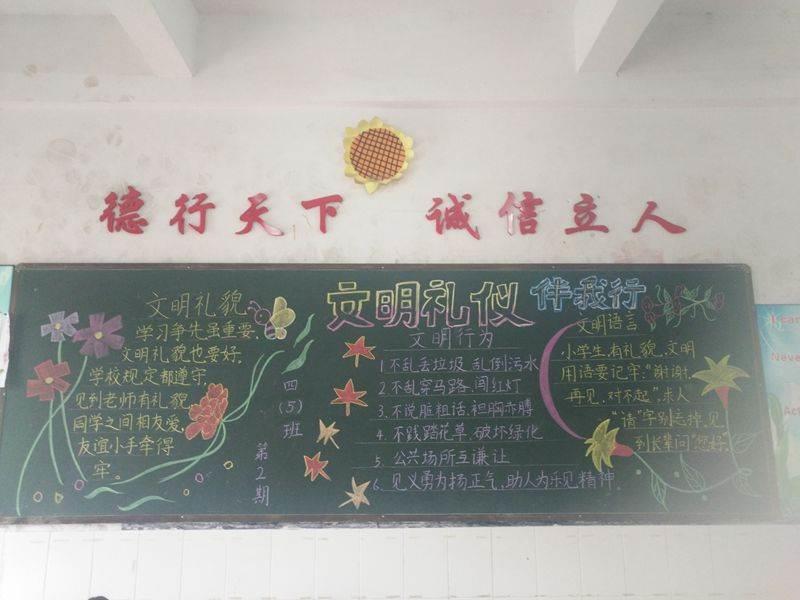 德行天下 诚信立人
文明礼仪 伴我行
文明礼貌
学习争先虽重要,
文明礼貌也要好。
学校规定都遵守,
见到老师有礼貌
同学之间相友爱,
友谊小手牵得
牢。
四(5)班
第2期
文明行为
1.不乱丢垃圾,乱倒污水
2.不乱穿马路、闯红灯
3、不说脏粗话,袒胸赤膊
4、不践踏花草、破坏绿化
5、公共场所互谦让
6、见义勇为扬正气,助人为乐见精神.
文明语言
小学生,有礼貌,文明
用语要记牢:“谢谢,
再见,对不起”,求人
“请”字别忘掉,见
到长辈问“您好”
I can
Never
Act